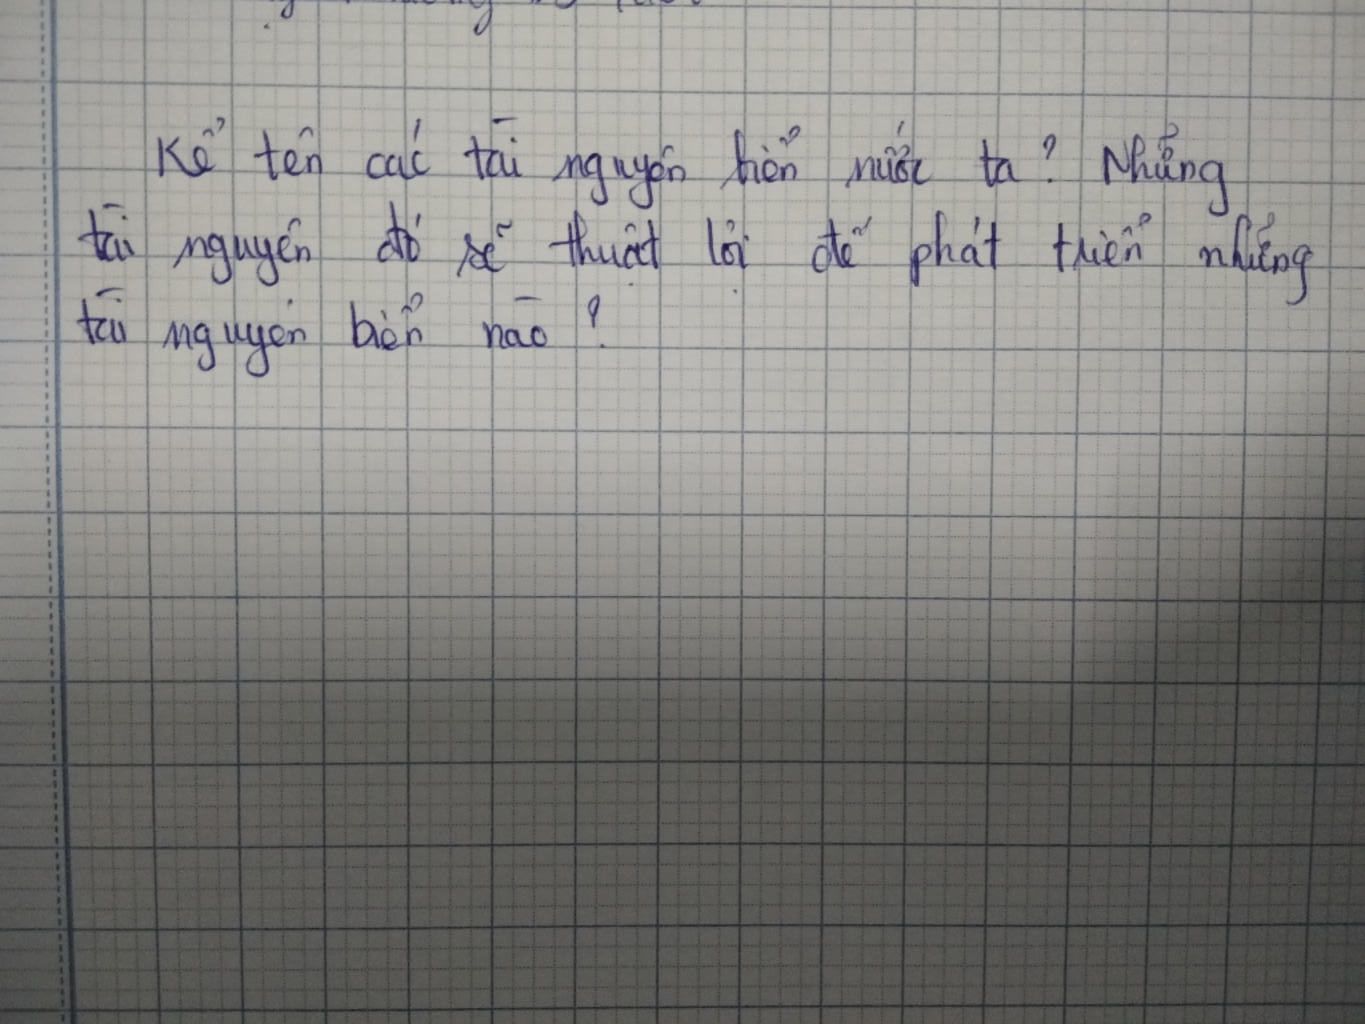 Kể tên các tài nguyên biển nước ta? Những
tài nguyên đó sẽ thuật lợi để phát triển những
tài nguyên biển nào?